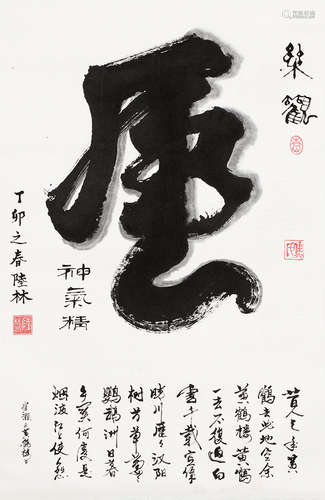 樂觀
神氣精
丁卯之春陸林
昔人已乘黄
鶴去此地空余
黄鶴樓黄鶴
一去不復返白
雲千載空悠
晴川歷々汉阳
樹芳草萋萋
鸚鵡洲日暮
乡關何處是
烟波江上使人愁